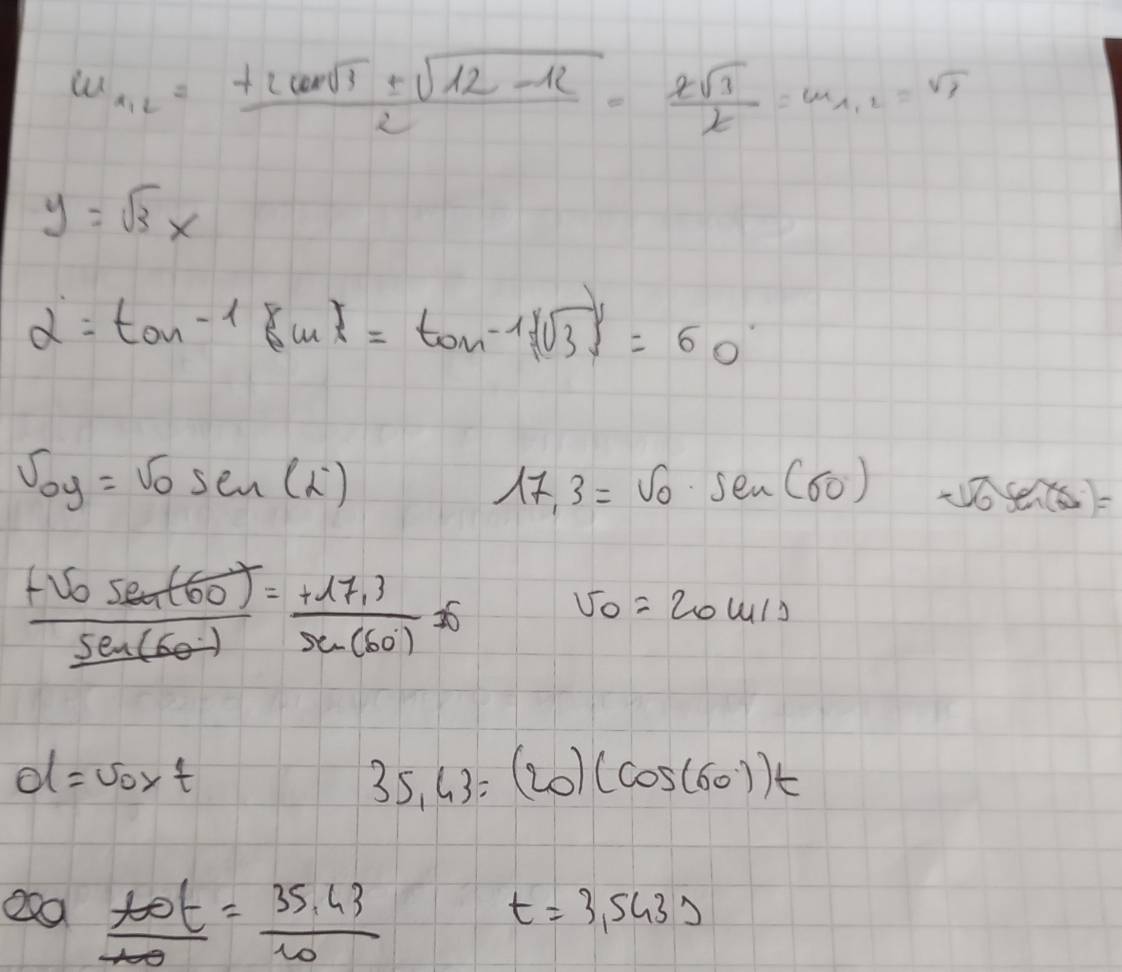 m₁,₂ = (+2√3 ± √(12 - 12))/2 = 2√3/2 = m₁,₂ = √3
y = √3 x
α = tan⁻¹ {m} = tan⁻¹{√3} = 60°
v₀y = v₀ sen (α) 17,3 = v₀ · sen(60°) -v₀ sen(60°) =
+v₀ sen(60°)/sen(60°) = +17,3/sen(60°) v₀ = 20 m/s
d = v₀x t 35,43 = (20)(cos(60°))t
10t/10 = 35,43/10 t = 3,543 s